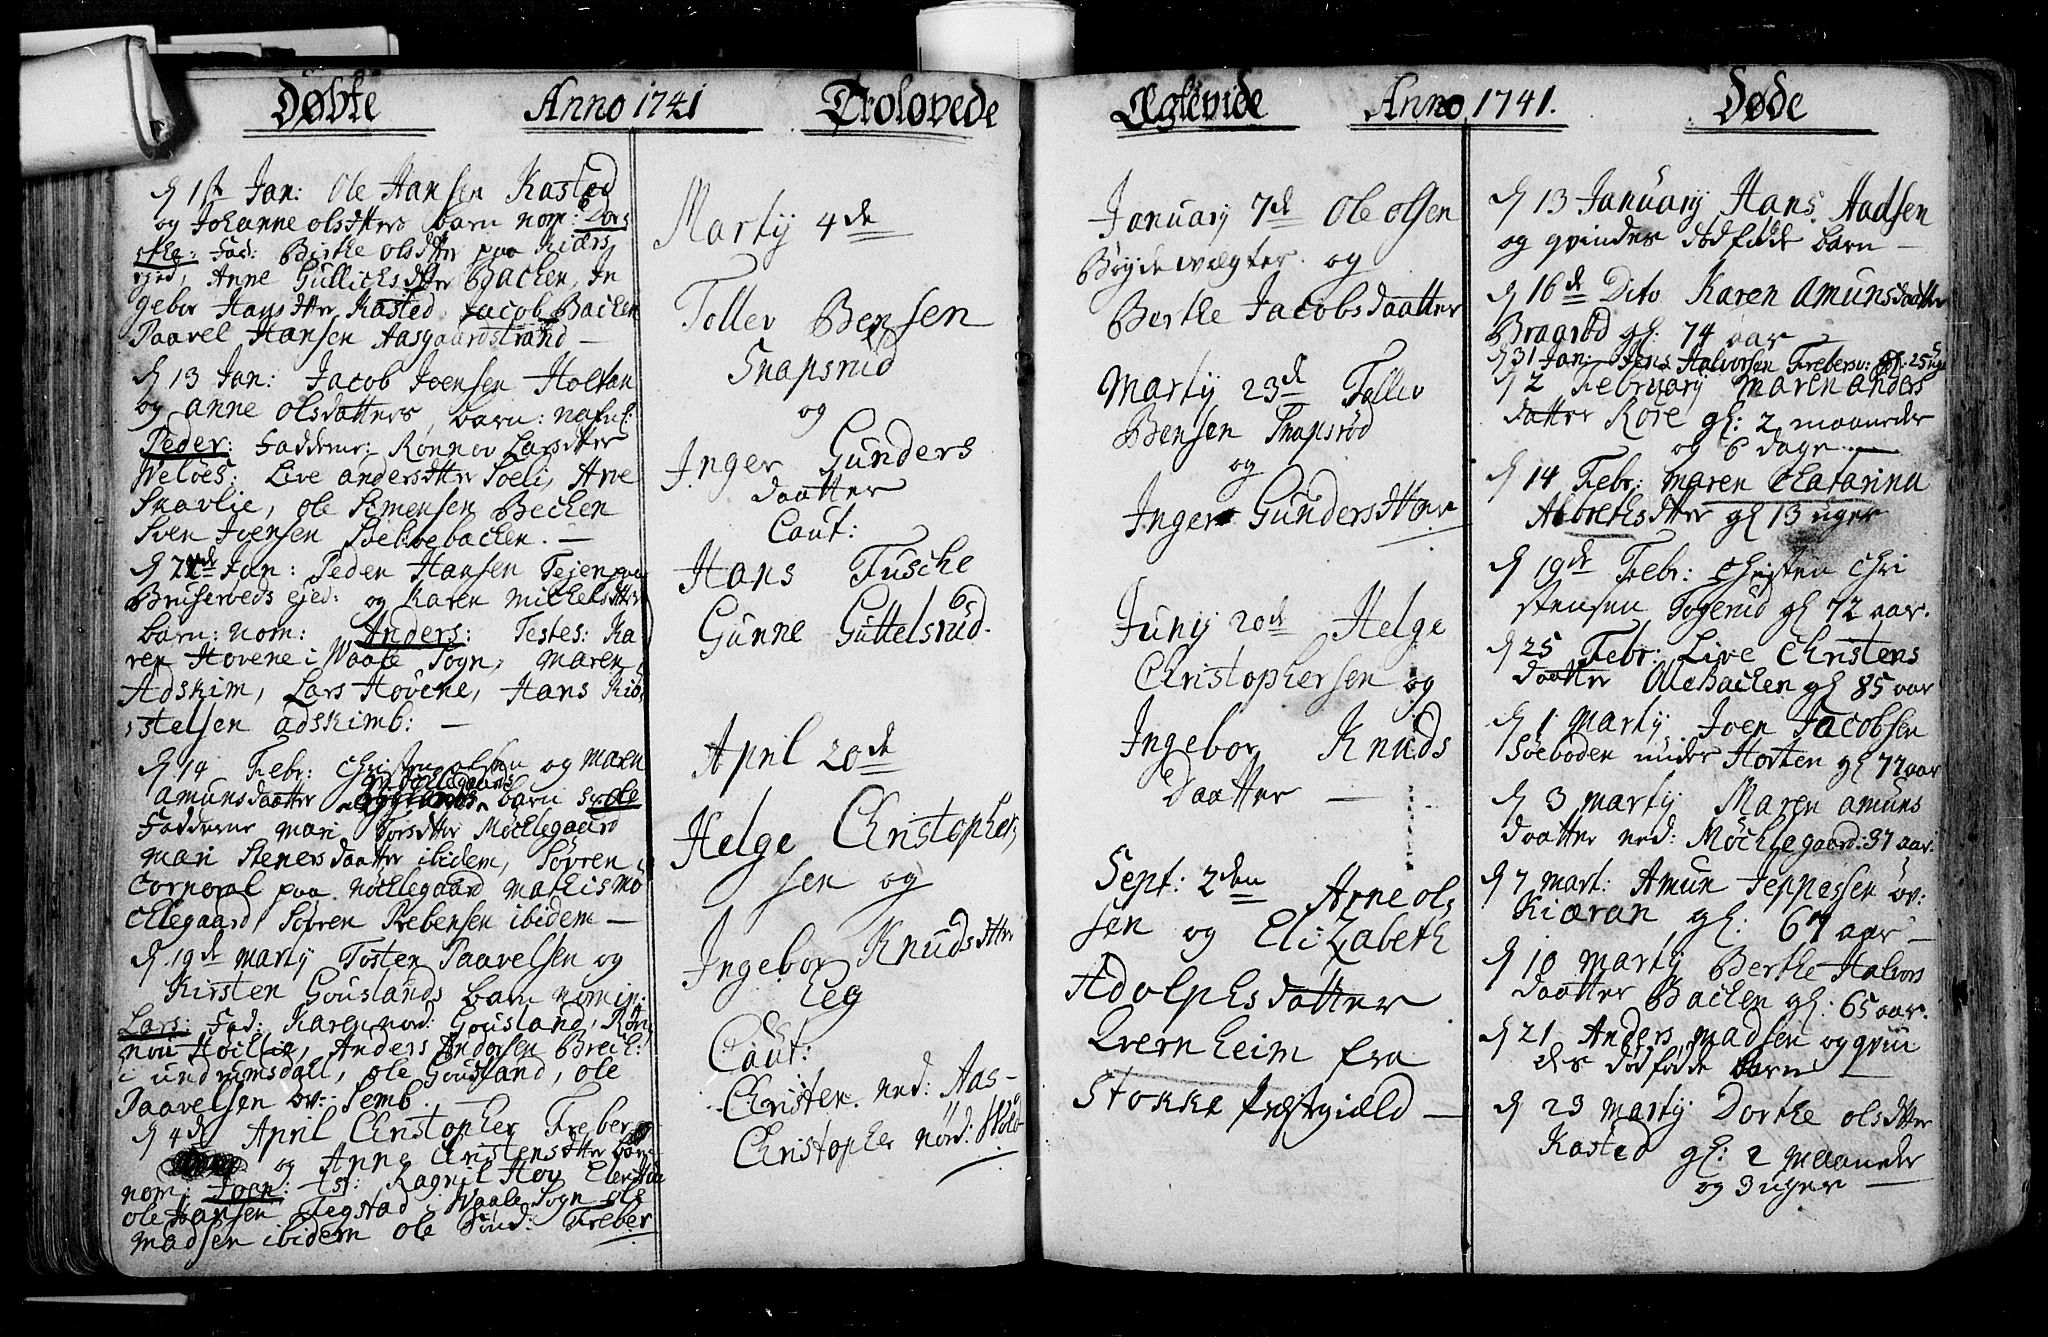 Døbte
Anno 1741
Troloṽede
d 1st Jan: Ole Hansen Kasted
og Johanne olsdtters barn nom: Dor
the: Fad: Birthe olsdtter paa Kiærs
ejed, Anne Gullichsdtter Bachen, In
gebor Hansdtter Kasted, Jacob Bachen
Paavel Hansen Aasgaardstrand —
d 13 Jan: Jacob Joensen Holtan
og anne olsdatters barn: nafnl:
Peder: Fadderne: Rønnov Larsdtter
Weløes: Live andersdtter Soeli, Arve
Skavlie, ole Simensen Bechen
Sven Joensen Bekkebachen. —
Jan: Peder Hansen Tejen paa
Bruserøeds ejed: og Karen Michelsdtter
barn: nom: Anders: Testes: Ka
ren Hovene i Waale Sogn, Maren
Adskim, Lars Hovene, Hans Kiø,
stelsen adskimb: —
d 14 Febr: Christen olsen og Maren
amunsdaatter Møchlegaards barn Ole
Fadderne Mari Torsdtter Møchlegaard
Mari Stenersdaatter ibidem, Søvren
Corporal paa Møchlegaard Mathis Mø
chlegaard, Søvren Prebensen ibidem —
d 19de Marty Tosten Paavelsen og
Kirsten Gouslands barn nomin:
Lars: Fad: Karen nord: Gousland, Røn,
nou Høilie, Anders Andersen Brech:
i undrumsdall, ole Gousland, ole
Paavelsen øv: Semb —
d 4de April Christopher Freber
og Anne Christensdtter barn
nom: Joen: Tst: Ragnil Hov Elen
ole Hansen Tegstad i Waale Sogn ole
Madsen ibidem ole Sund: Freber
Marty 4de
Tollev Bensen
Snapsrud
og
Inger Gunders
daatter
Caut:
Hans Fusche
Gunne Guttelsrud.
April 20de
Helge Christopher,
sen og
Ingebor Knudsdtter
Eeg
Caut:
Christen ned: Aas-
Christopher nord: Wold
Ægteṽide
Anno 1741.
Døde
January 7de Ole olsen
Bøygdevægter og
Berthe Jacobsdaatter
Marty 23de Tollev
Bensen Snapsrød
og
Inger Gundersdtter
Juny 20de Helge
Christophersen og
Ingebor Knuds
Daatter —
Sept: 2den Arne ol,
sen og Elizabeth
Adolphsdatter
Qvernheim fra
Stokke præstgiæld —
d 13 January Hans Aadsen
og qvindes dødfødde barn —
d 16de Dito Karen Amunsdaatter
Braarød gl: 74 aar —
d 31 Jan: Jens Halvorsen Freberv: gl. 25 uge
d 2 February Maren anders
datter Røre gl: 2 maaneder
og 6 dage —
d 14 Febr: Maren Chatarina
Albrethsdtter gl 13 uger
d 19de Febr: Christen Chri
stensen Togerud gl 72 aar.
d 25 Febr: Live Christens
daatter OlleBachen gl 85 aar
d 1 Marty Joen Jacobsen
Søeboden under Horten gl 72 aar
d 3 Marty Maren amuns
daatter ned: Møchlegaard: 37 aar:
d 7 Mart: Amun Jeppessen øv:
Kiæran gl: 67 aar —
d 10 Marty Berthe Halvors
daatter Bachen gl: 65 aar.
d 21 Anders Madsen og qvin
des dødfødde barn —
d 23 Marty Dorthe olsdtter
Kasted gl: 2 Maaneder
og 3 uger —